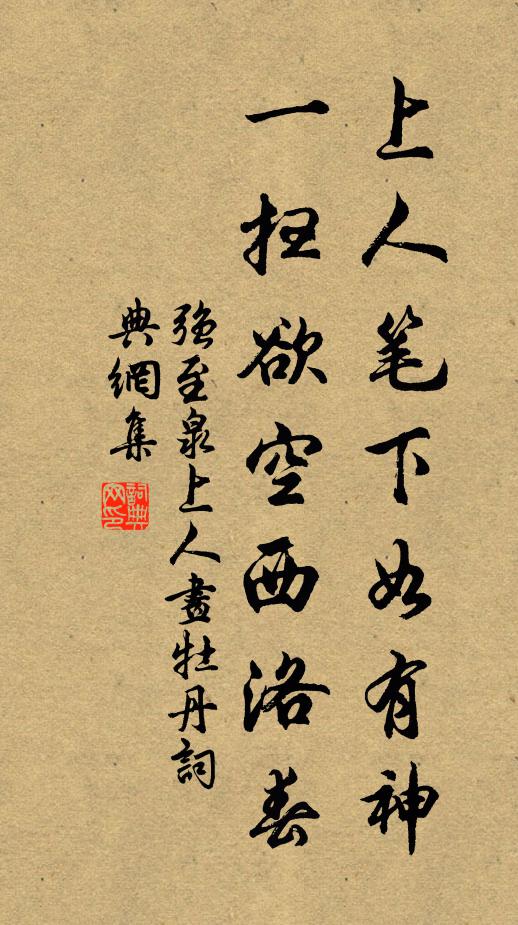 上人笔下如有神
一扫欲空西洛春
強至泉上人畫牡丹詞
典網集
詞典网印